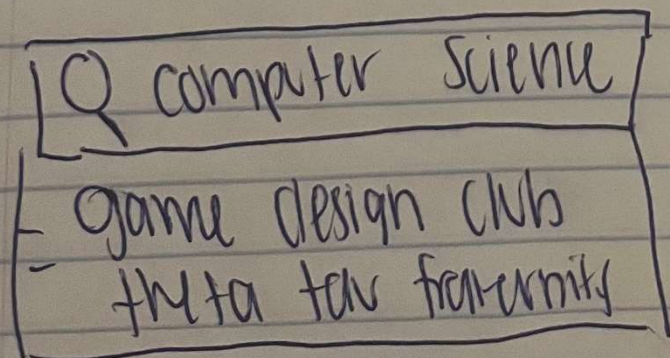 computer science
- game design club
- theta tau fraternity